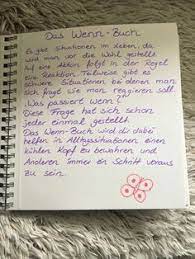 Das Wenn-Buch
Es gibt Situationen im Leben, da
wird man vor die Wahl gestellt.
Auf eine Aktion folgt in der Regel
eine Reaktion. Teilweise gibt es
schwere Situationen bei denen man
sich fragt wie man reagieren soll.
"Was passiert wenn?"
Diese Frage hat sich schon
jeder einmal gestellt.
Das Wenn-Buch wird dir dabei
helfen in Alltagssituationen einen
kühlen Kopf zu bewahren und
Anderen immer ein Schritt voraus
zu sein.